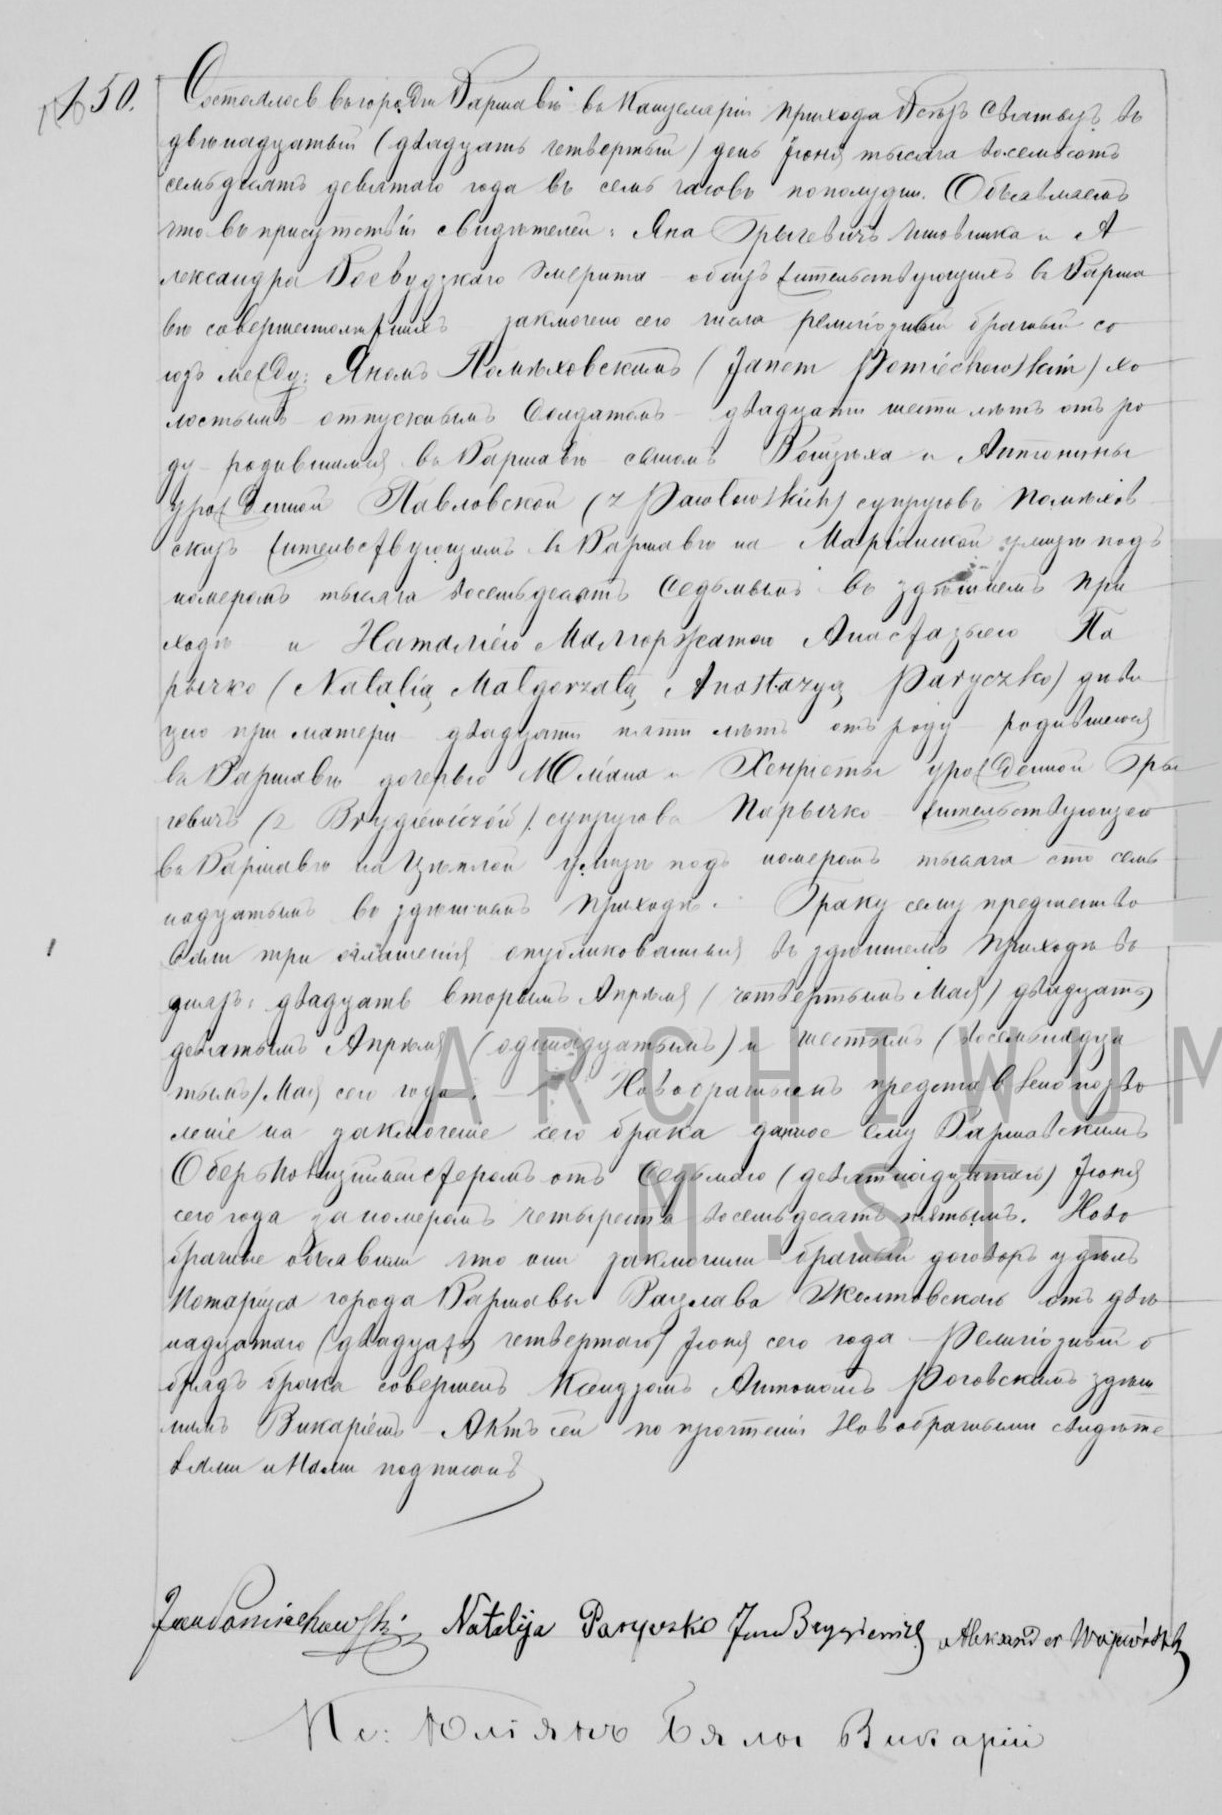 150.
Состоялось въ городѣ Варшавѣ въ Канцеляріи прихода Всѣхъ Святыхъ въ
двѣнадцатый (двадцать четвертый) день Іюня тысяча восемьсотъ
семьдесятъ девятаго года въ семь часовъ пополудни. Объявляемъ
что въ присутствіи свидѣтелей: Яна Брыгевичъ чиновника и А
лександра Воевудзкаго Эмерита обоихъ жительствующихъ въ Варша
вѣ совершеннолѣтнихъ заключено сего числа религіозный брачный со
юзъ между: Яномъ Помѣховскимъ (Janem Pomiechowskim) хо
лостымъ отпускнымъ Солдатомъ двадцати шести лѣтъ отъ ро
ду родившимся въ Варшавѣ сыномъ Войцѣха и Антонины
урожденной Павловской (z Pawłowskich) супруговъ Помѣхов
скихъ жительствующимъ въ Варшавѣ на Маріанской улицѣ подъ
номеромъ тысяча восемьдесятъ седьмымъ въ здѣшнемъ при
ходѣ и Наталіею Малгоржатою Анастазыею Па
рычко (Natalią Małgorzatą Anastazyą Paryczko) дѣви
цею при матери двадцати пяти лѣтъ отъ роду родившеюся
въ Варшавѣ дочерью Юліана и Хенріеты урожденной Бры
гевичъ (z Brygiewiczów) супруговъ Парычко жительствующею
въ Варшавѣ на Цѣплой улицѣ подъ номеромъ тысяча сто семь
надцатымъ въ здѣшнемъ приходѣ. Браку сему предшество
вали три оглашенія опубликованныя въ здѣшнемъ приходѣ въ
дняхъ: двадцать вторымъ Апрѣля (четвертымъ Мая) двадцать
девятымъ Апрѣля (одинадцатымъ) и шестымъ (восемьнадца
тымъ) Мая сего года. Новобрачнымъ представлено позво
леніе на заключеніе сего брака данное ему Варшавскимъ
Оберъ Полицмейстеромъ отъ седьмаго (девятнадцатаго) Іюня
сего года за номеромъ четыреста восемьдесятъ пятымъ. Ново
брачные объявили что они заключили брачный договоръ у дѣлъ
Нотаріуса города Варшавы Вацлава Жолтовскаго отъ двѣ
надцатаго (двадцать четвертаго) Іюня сего года Религіозный о
брядъ брака совершенъ Ксендзомъ Антономъ Роговскимъ здѣш
нимъ Викаріемъ Актъ сей по прочтеніи Новобрачными свидѣте
лями и Нами подписанъ
Jan Pomiechowski Natalija Paryczko Jan Brygiewicz Aleksander Wojewódzki
Кс: Юліянъ Бялы Викарій
ARCHIWUM
M. ST.